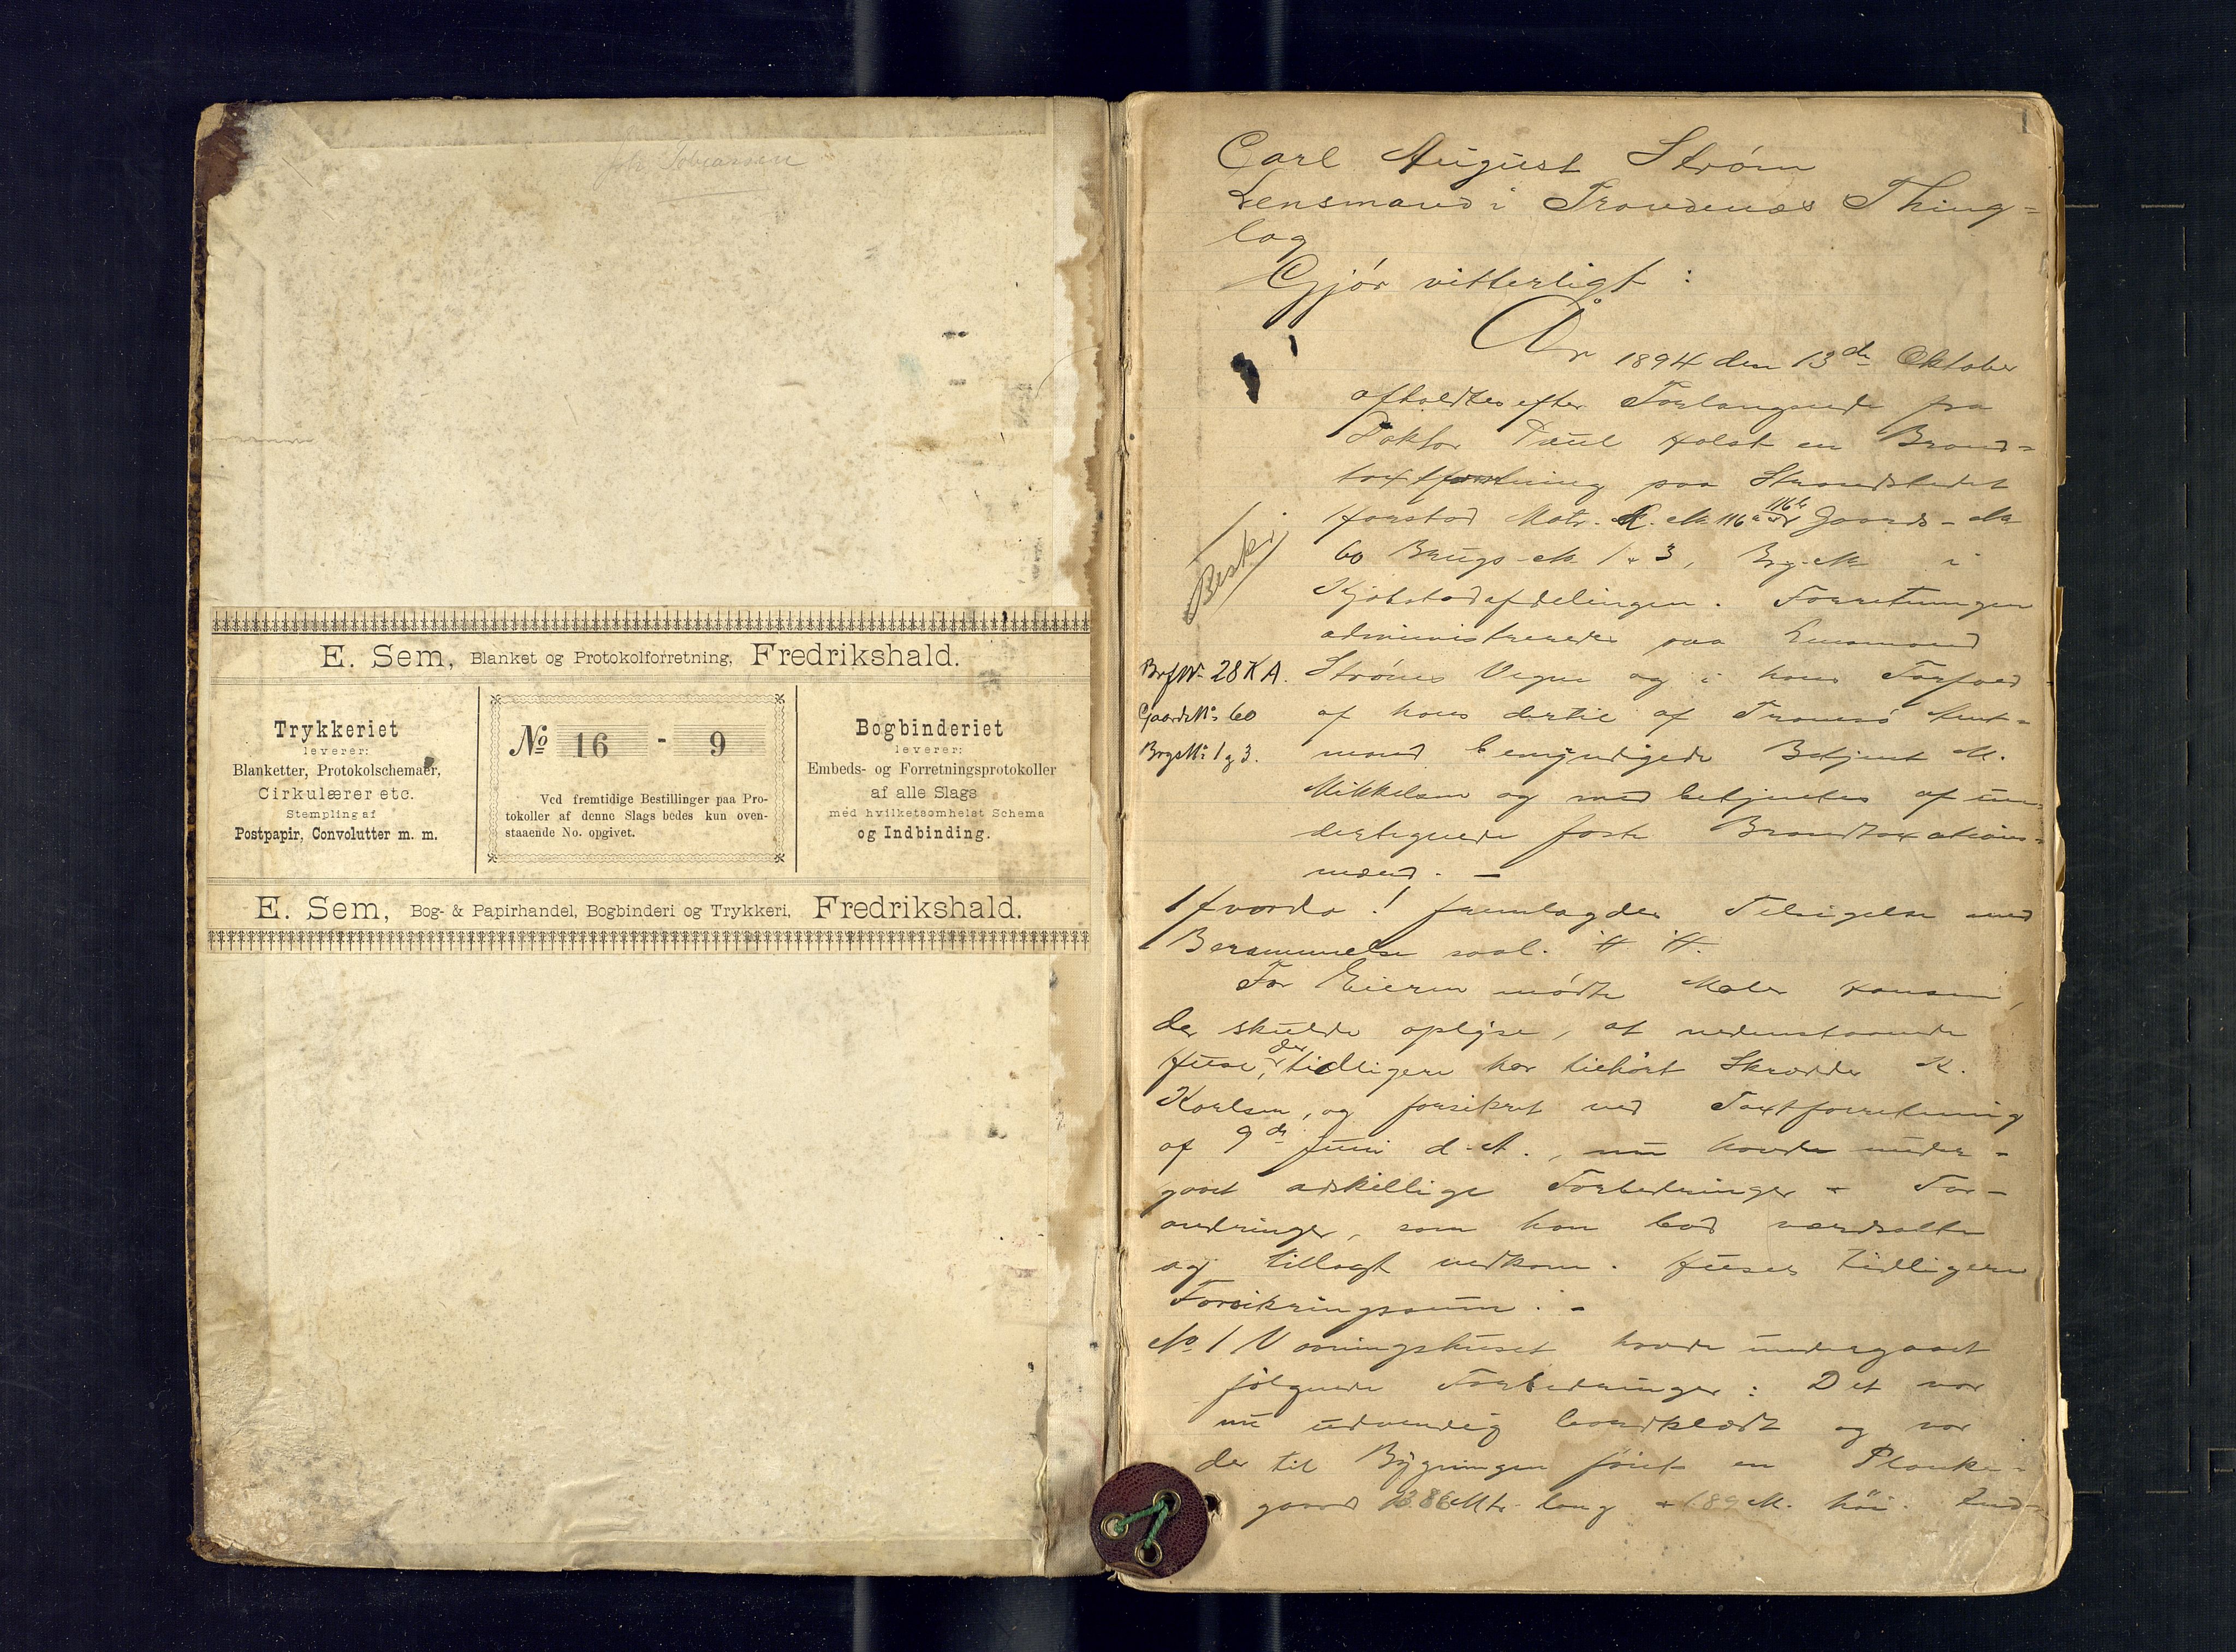 Joh. Tobiassen
E. Sem, Blanket og Protokolforretning, Fredrikshald.
Trykkeriet
leverer:
Blanketter, Protokolschemaer,
Cirkulærer etc.
Stempling af
Postpapir, Convolutter m. m.
No 16 - 9
Ved fremtidige Bestillinger paa Pro-
tokoller af denne Slags bedes kun oven-
staaende No. opgivet.
Bogbinderiet
leverer:
Embeds- og Forretningsprotokoller
af alle Slags
med hvilketsomhelst Schema
og Indbinding.
E. Sem, Bog- & Papirhandel, Bogbinderi og Trykkeri, Fredrikshald.
1
Carl August Strøm
Lensmand i Trondenæs Thing=
lag
Gjør vitterligt:
År 1894 den 13de Oktober
afholdtes efter Forlangende fra
Doktor Paul Holst en Brand=
taxtforretning paa Strandstedet
Harstad Matr. No 116a og 116b Gaards-No
60 Brugs-No 1 & 3, Byg.No i
Kjøbstadafdelingen. Forretningen
administreredes paa Lensmand
Strøms Vegne og i hans Forfald
af hans dertil af Tromsø Amt-
mand bemyndigede Betjent M.
Mikkelsen og med betjentes af un-
dertegnede faste Brandtaxations-
mænd. -
Beskr
BrfNo 28 K A.
GaardsNo 60
BrgsNo 1 og 3.
Hvorda! fremlagdes Tilsigelse med
Berammelse saal. H H.
For Eieren mødte Maler Hansen,
der skulde oplyse, at nedenstaaende
Huse, der tidligere har tilhørt Skrædder K.
Karlsen, og forsikret ved Taxtforretning
af 9de Juni d. A., nu havde under-
gaaet adskillige Forbedringer & For-
andringer, som han bad værdsatte
og tillagt vedkom. Huses tidligere
Forsikringssum. -
No 1 Vaaningshuset havde undergaaet
følgende Forbedringer: Det var
nu udvendig bordklædt og var
der til Bygningen føiet en Planke-
gaard Mtr. lang & 1.89 M. høi. Ind-